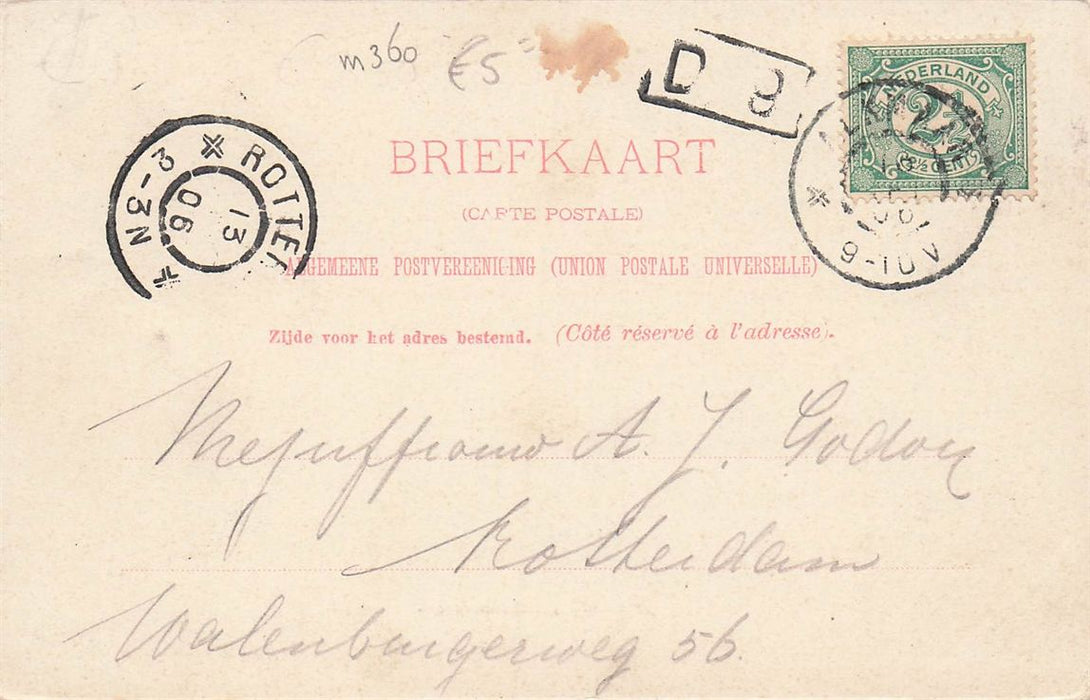 m360 €5
D 8
NEDERLAND
2½
2½ CENT
9-10V
ROTTE
13
06
3-3N
BRIEFKAART
(CARTE POSTALE)
ALGEMEENE POSTVEREENIGING (UNION POSTALE UNIVERSELLE)
Zijde voor het adres bestemd. (Côté réservé à l'adresse).
Mejuffrouw A. J. Godon
Rotterdam
Walenburgerweg 56.